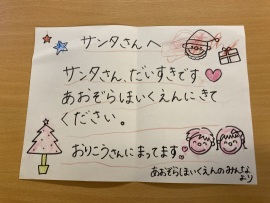 サンタさんへ
サンタさん、だいすきです
あおぞらほいくえんにきて
ください。
おりこうさんにまってます。
あおぞらほいくえんのみんな
より